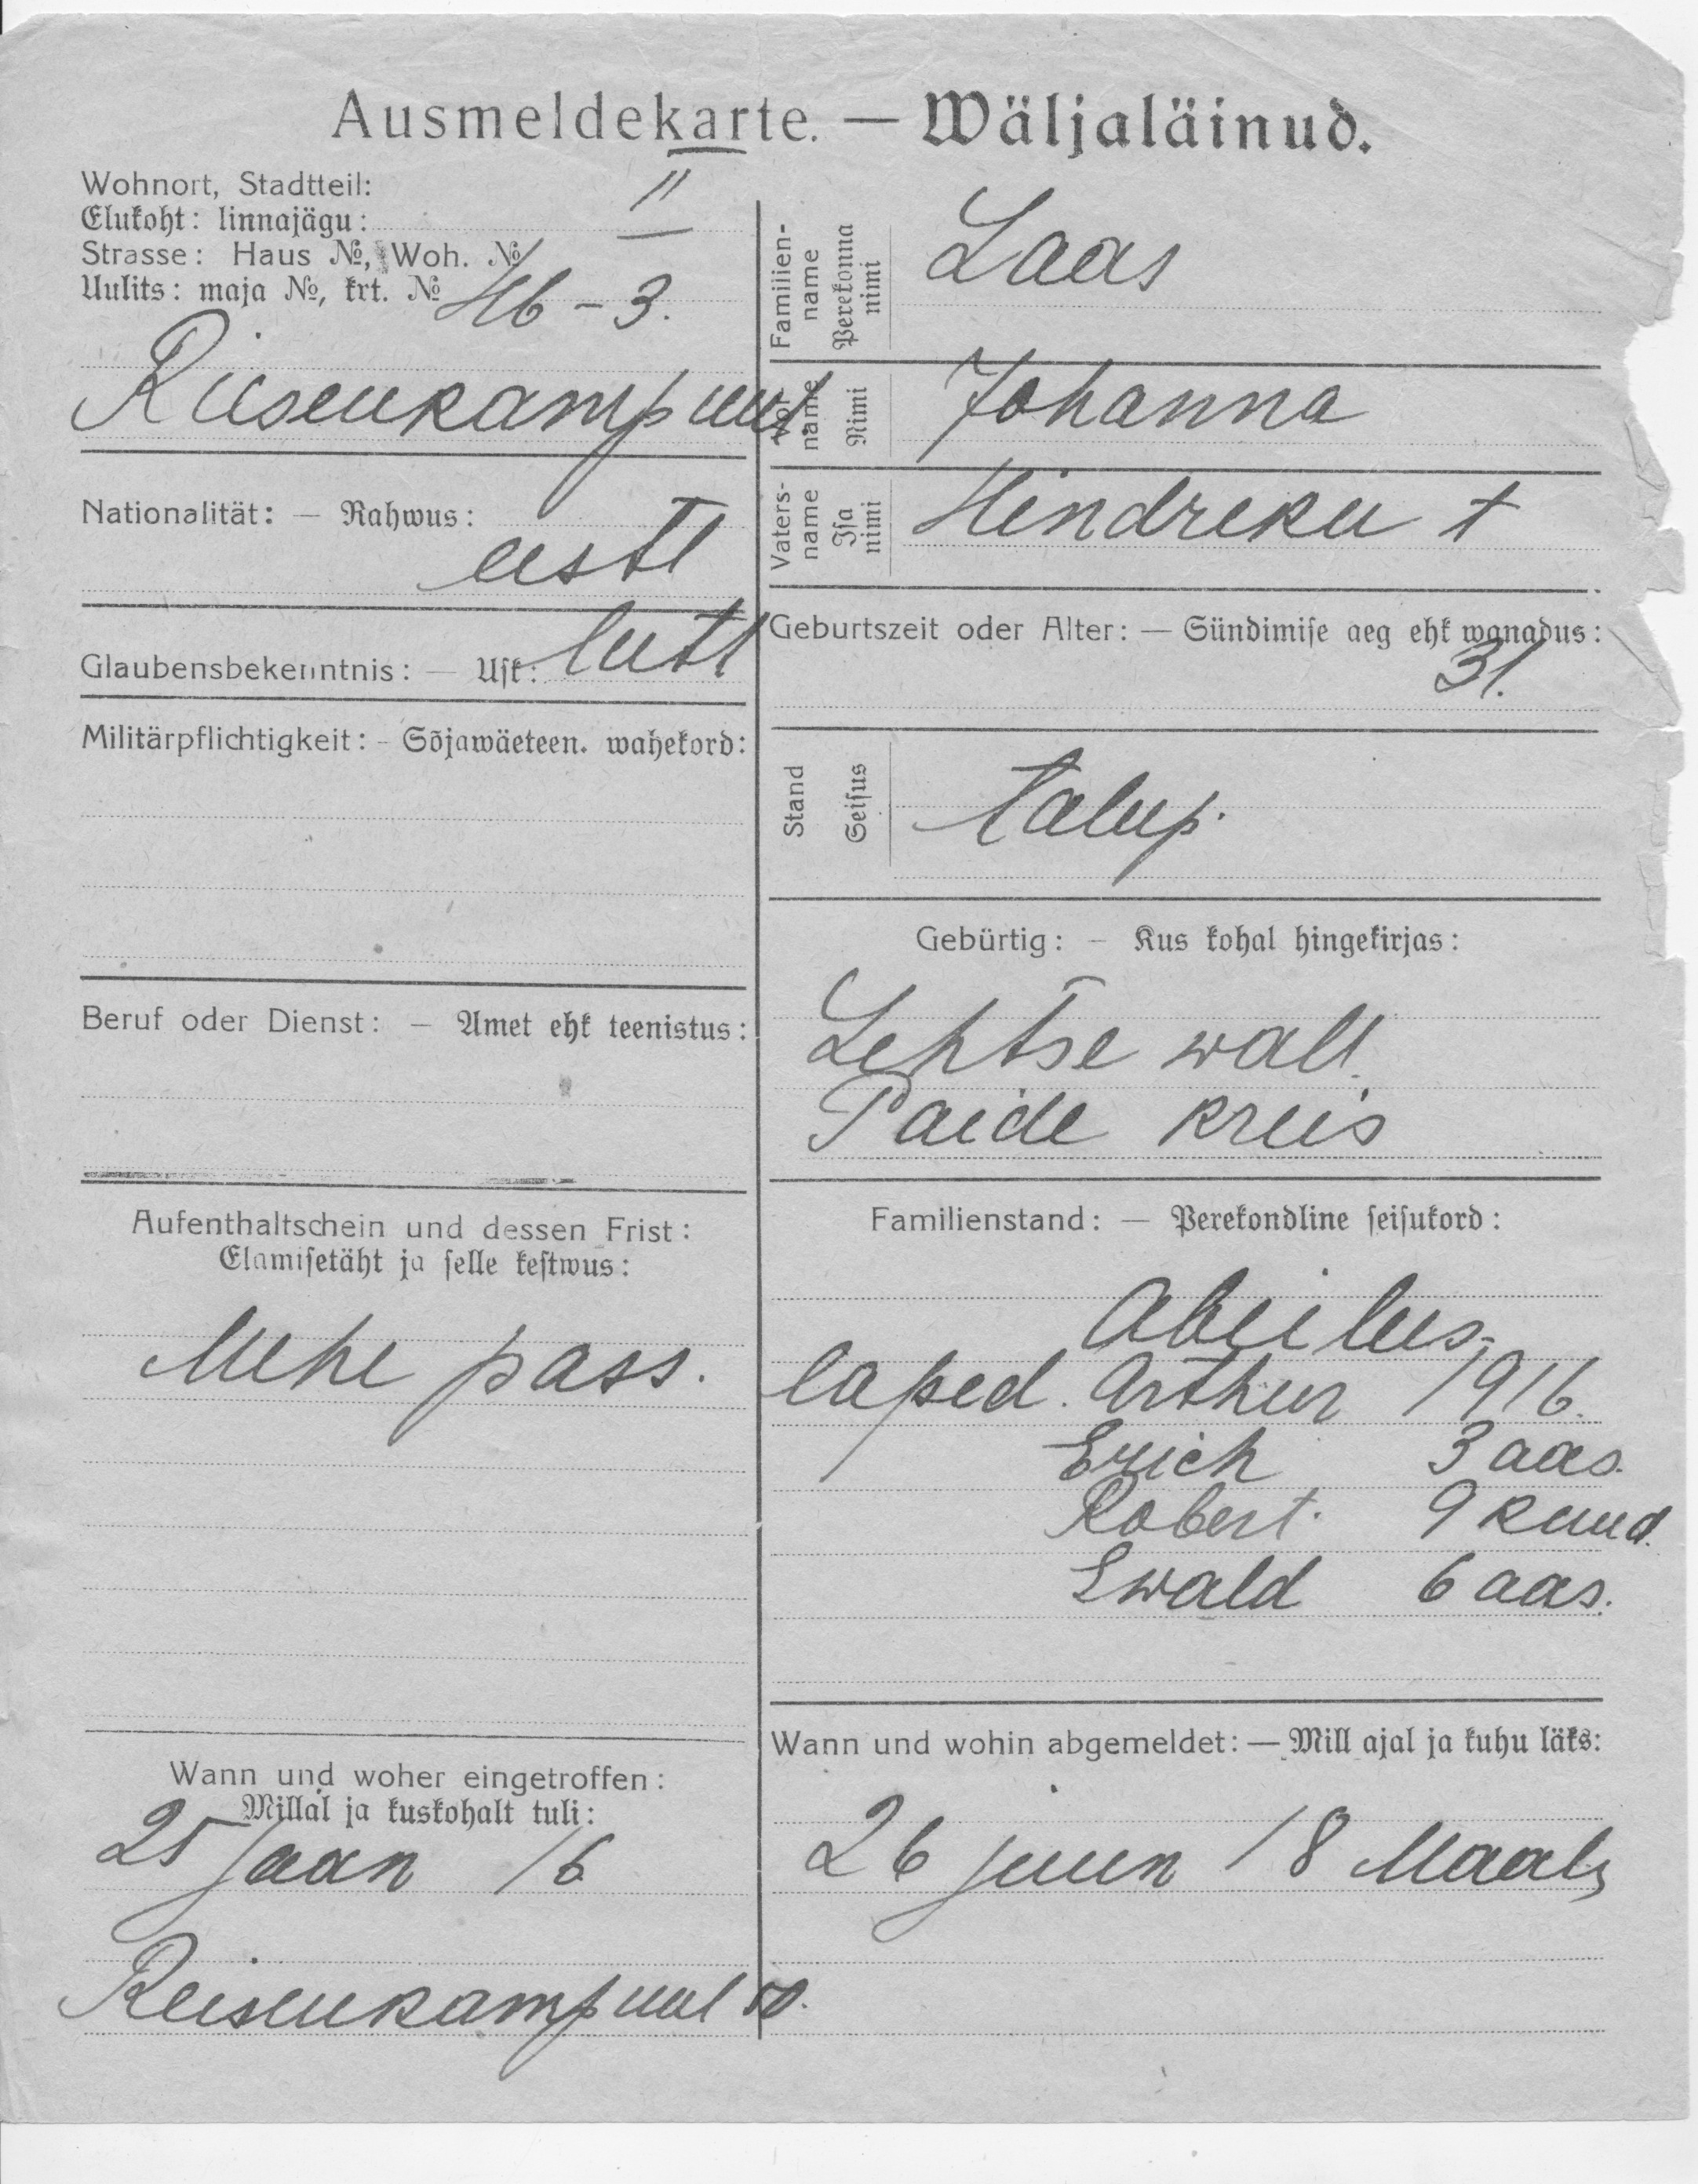 Ausmeldekarte. — Wäljaläinud.
Wohnort, Stadtteil:
Elukoht: linnajägu:
II
Strasse: Haus №, Woh. №
Uulits: maja №, krt. №
46 - 3.
Nationalität: — Rahwus:
eesti
Glaubensbekenntnis: — Usk:
lutt
Militärpflichtigkeit: - Sõjawäeteen. wahekord:
Beruf oder Dienst: — Amet ehk teenistus:
Aufenthaltschein und dessen Frist:
Elamisetäht ja selle kestwus:
Mehe pass.
Wann und woher eingetroffen:
Millal ja kuskohalt tuli:
25 jaan 16
Familien-
name
Perekonna
nimi
Laas
Vor-
name
Nimi
Johanna
Vaters-
name
Isa
nimi
Hindreku t
Geburtszeit oder Alter: — Sündimise aeg ehk wanadus:
31.
Stand
Seisus
talup.
Gebürtig: — Kus kohal hingekirjas:
Lehtse wall.
Paide kreis
Familienstand: — Perekondline seisukord:
Abielus,
lapsed. Arthur 1916.
Erich 3 aas.
Robert. 9 kuud.
Ewald 6 aas.
Wann und wohin abgemeldet: — Mill ajal ja kuhu läks:
26 juun 18 Maale